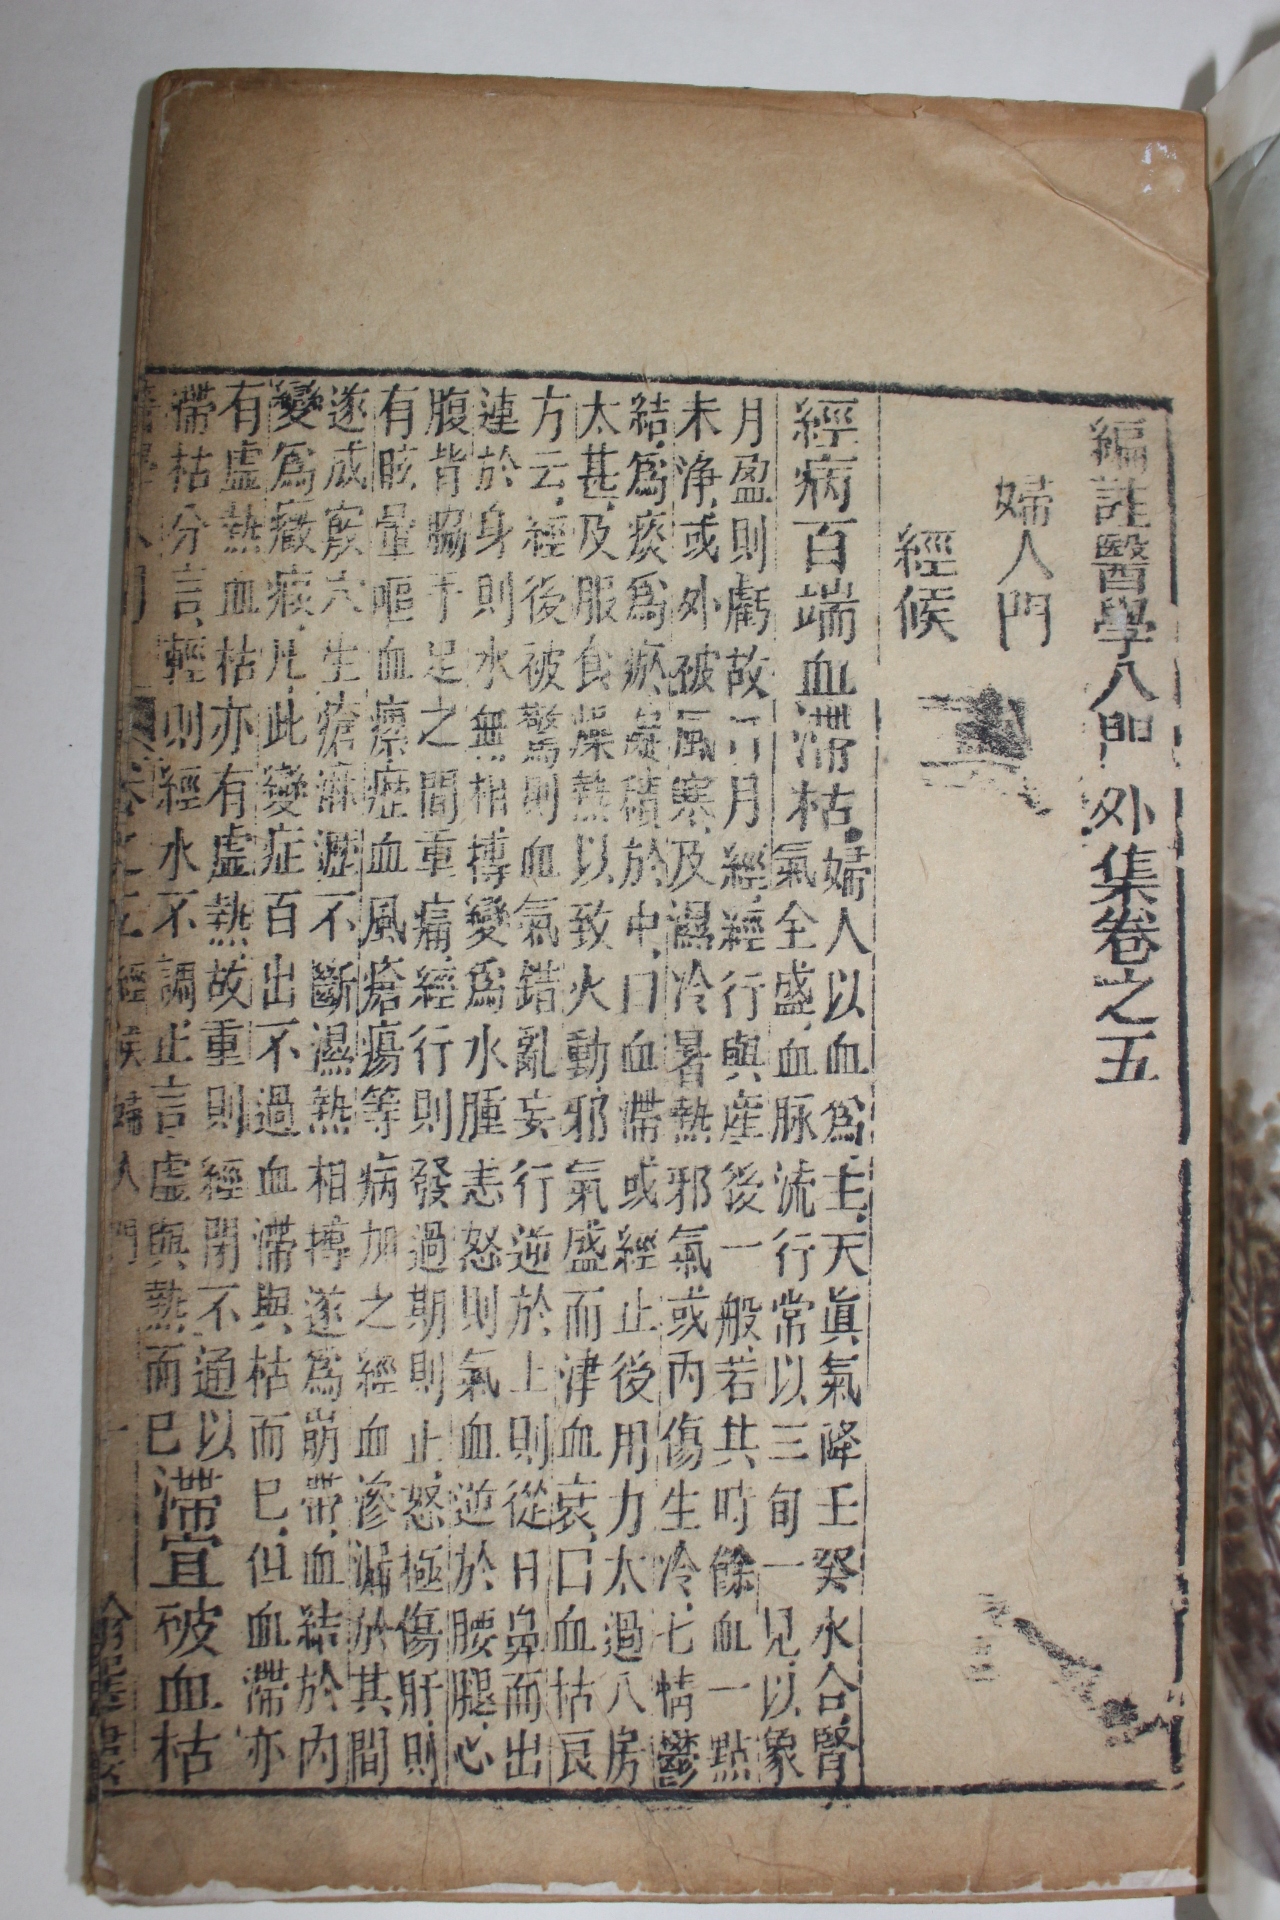 編註醫學入門外集卷之五
婦人門
經候
經病百端血滯枯
婦人以血爲主,天眞氣降壬癸水合,腎
氣全盛,血脉流行常以三旬一見,以象
月盈則虧故曰月經,經行與產後一般,若其時餘血一點
未淨,或外被風寒,及濕冷暑熱邪氣或內傷生冷,七情鬱
結,爲痰爲瘀凝積於中,曰血滯或經止後用力太過入房
太甚,及服食燥熱以致火動邪氣盛而津血衰,曰血枯良
方云,經後被驚則血氣錯亂妄行逆於上則從口鼻而出
連於身則水無相搏變爲水腫恚怒則氣血逆於腰腿,心
腹背脇手足之間重痛,經行則發過期則止,怒極傷肝,則
有眩暈嘔血瘰癧血風瘡瘍等病加之經血滲漏於其間
遂成竅穴生瘡淋瀝不斷濕熱相搏遂爲崩帶,血結於內
變爲癥瘕,凡此變症百出不過血滯與枯而已,但血滯亦
有虛熱血枯亦有虛熱,故重則經閉不通以
滯枯分言,輕則經水不調止言虛與熱而已
滯宜破血枯
經候婦人門